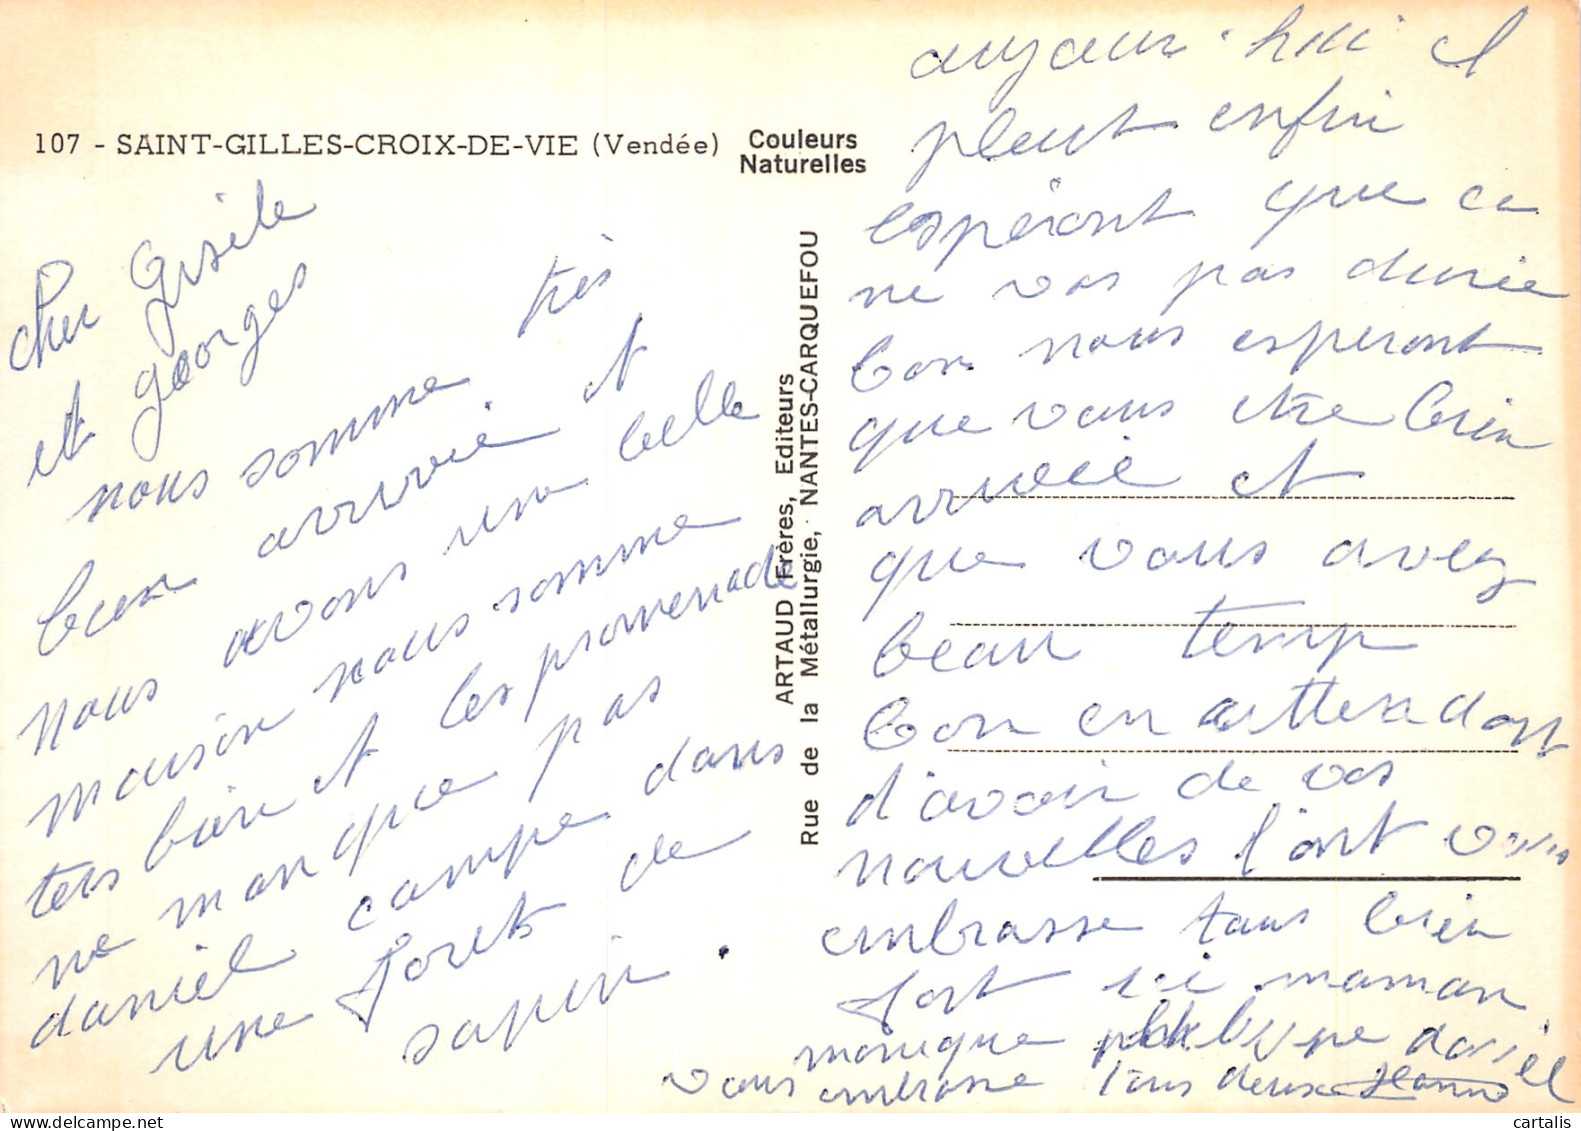 107 - SAINT-GILLES-CROIX-DE-VIE (Vendée)
Couleurs
Naturelles
cher Gisèle
et georges
nous somme très
bien arrivée et
nous avons une belle
maison nous somme
ters bien et les promenade
ne manque pas
daniel campe dans
une foret de
sapin.
ARTAUD Frères, Editeurs
Rue de la Métallurgie, NANTES-CARQUEFOU
aujour-hui il
pleut enfin
espéront que ce
ne vas pas durée
bon nous esperont
que vous etre bien
arrivée et
que vous avez
beau temp
bon en attendant
d'avoir de vos
nouvelles l'ont vous
embrasse tous bien
fort ici maman
monique daniel
vous embrasse tous deux
cartalis